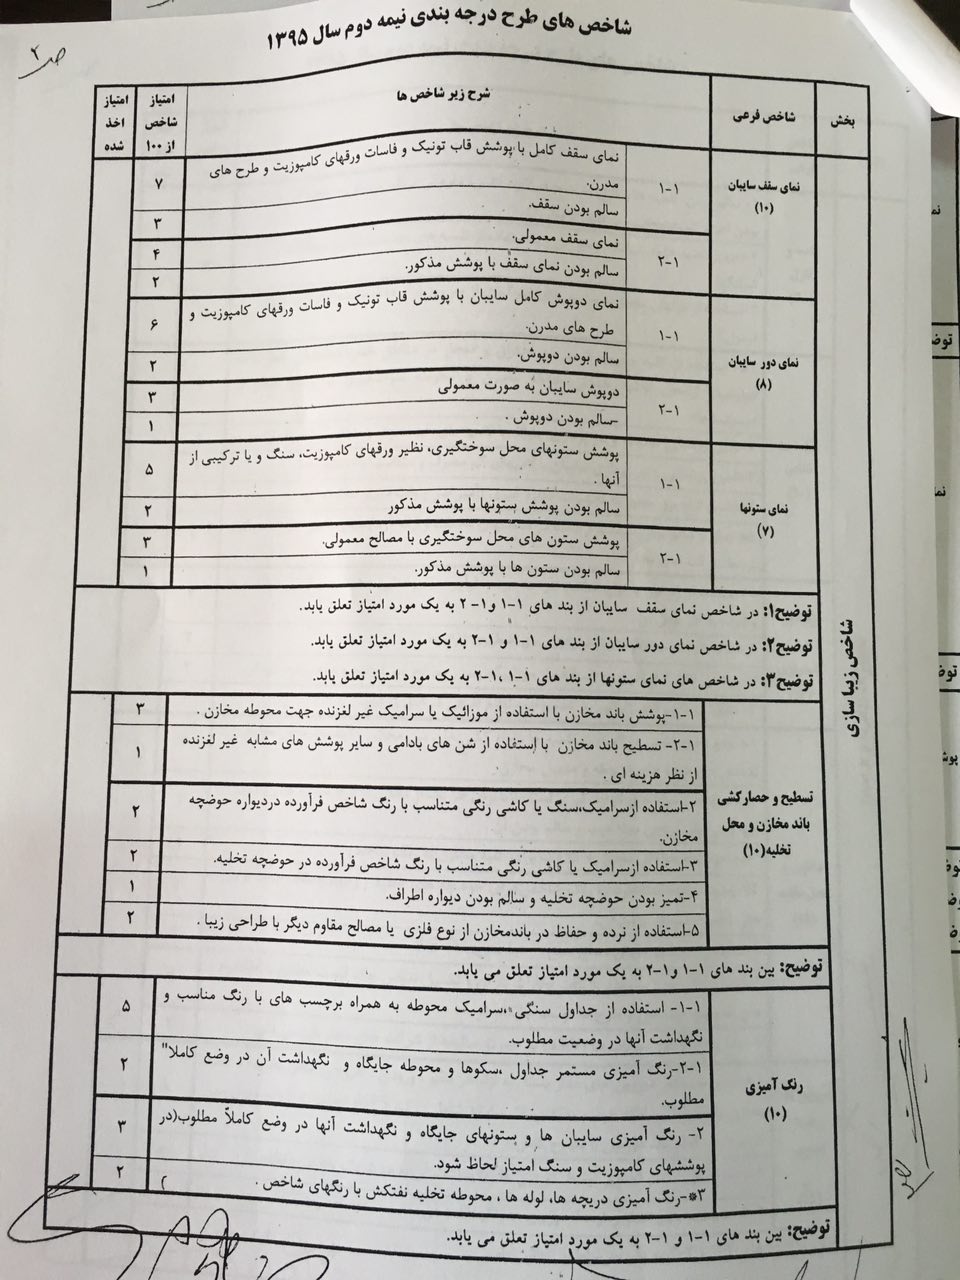 شاخص های طرح درجه بندی نیمه دوم سال ۱۳۹۵
ص ۲
بخش
شاخص فرعی
شرح زیر شاخص ها
امتیاز
شاخص
از ۱۰۰
امتیاز
اخذ
شده
شاخص زیبا سازی
نمای سقف سایبان
(۱۰)
۱-۱
نمای سقف کامل با پوشش قاب تونیک و فاسات ورقهای کامپوزیت و طرح های
مدرن.
۷
سالم بودن سقف.
۳
۲-۱
نمای سقف معمولی.
۴
سالم بودن نمای سقف با پوشش مذکور.
۲
نمای دور سایبان
(۸)
۱-۱
نمای دوپوش کامل سایبان با پوشش قاب تونیک و فاسات ورقهای کامپوزیت و
طرح های مدرن.
۶
سالم بودن دوپوش.
۲
۲-۱
دوپوش سایبان به صورت معمولی
۳
-سالم بودن دوپوش .
۱
نمای ستونها
(۷)
۱-۱
پوشش ستونهای محل سوختگیری، نظیر ورقهای کامپوزیت، سنگ و یا ترکیبی از
آنها .
۵
سالم بودن پوشش ستونها با پوشش مذکور
۲
۲-۱
پوشش ستون های محل سوختگیری با مصالح معمولی.
۳
سالم بودن ستون ها با پوشش مذکور.
۱
توضیح۱: در شاخص نمای سقف سایبان از بند های ۱-۱ و۱- ۲ به یک مورد امتیاز تعلق یابد.
توضیح۲: در شاخص نمای دور سایبان از بند های ۱-۱ و ۱-۲ به یک مورد امتیاز تعلق یابد.
توضیح۳: در شاخص های نمای ستونها از بند های ۱-۱ ،۱-۲ به یک مورد امتیاز تعلق یابد.
تسطیح و حصارکشی
باند مخازن و محل
تخلیه(۱۰)
۱-۱-پوشش باند مخازن با استفاده از موزائیک یا سرامیک غیر لغزنده جهت محوطه مخازن .
۳
۱-۲- تسطیح باند مخازن با استفاده از شن های بادامی و سایر پوشش های مشابه غیر لغزنده
از نظر هزینه ای .
۱
۲-استفاده ازسرامیک،سنگ یا کاشی رنگی متناسب با رنگ شاخص فرآورده دردیواره حوضچه
مخازن.
۲
۳-استفاده ازسرامیک یا کاشی رنگی متناسب با رنگ شاخص فرآورده در حوضچه تخلیه.
۲
۴-تمیز بودن حوضچه تخلیه و سالم بودن دیواره اطراف.
۱
۵-استفاده از نرده و حفاظ در باندمخازن از نوع فلزی یا مصالح مقاوم دیگر با طراحی زیبا .
۲
توضیح: بین بند های ۱-۱ و۱-۲ به یک مورد امتیاز تعلق می یابد.
رنگ آمیزی
(۱۰)
۱-۱- استفاده از جداول سنگی،سرامیک محوطه به همراه برچسب های با رنگ مناسب و
نگهداشت آنها در وضعیت مطلوب.
۵
۱-۲-رنگ آمیزی مستمر جداول ،سکوها و محوطه جایگاه و نگهداشت آن در وضع کاملا"
مطلوب.
۲
۲- رنگ آمیزی سایبان ها و ستونهای جایگاه و نگهداشت آنها در وضع کاملاً مطلوب(در
پوششهای کامپوزیت و سنگ امتیاز لحاظ شود.
۳
۳*-رنگ آمیزی دریچه ها، لوله ها ، محوطه تخلیه نفتکش با رنگهای شاخص . )
۲
توضیح: بین بند های ۱-۱ و ۱-۲ به یک مورد امتیاز تعلق می یابد.